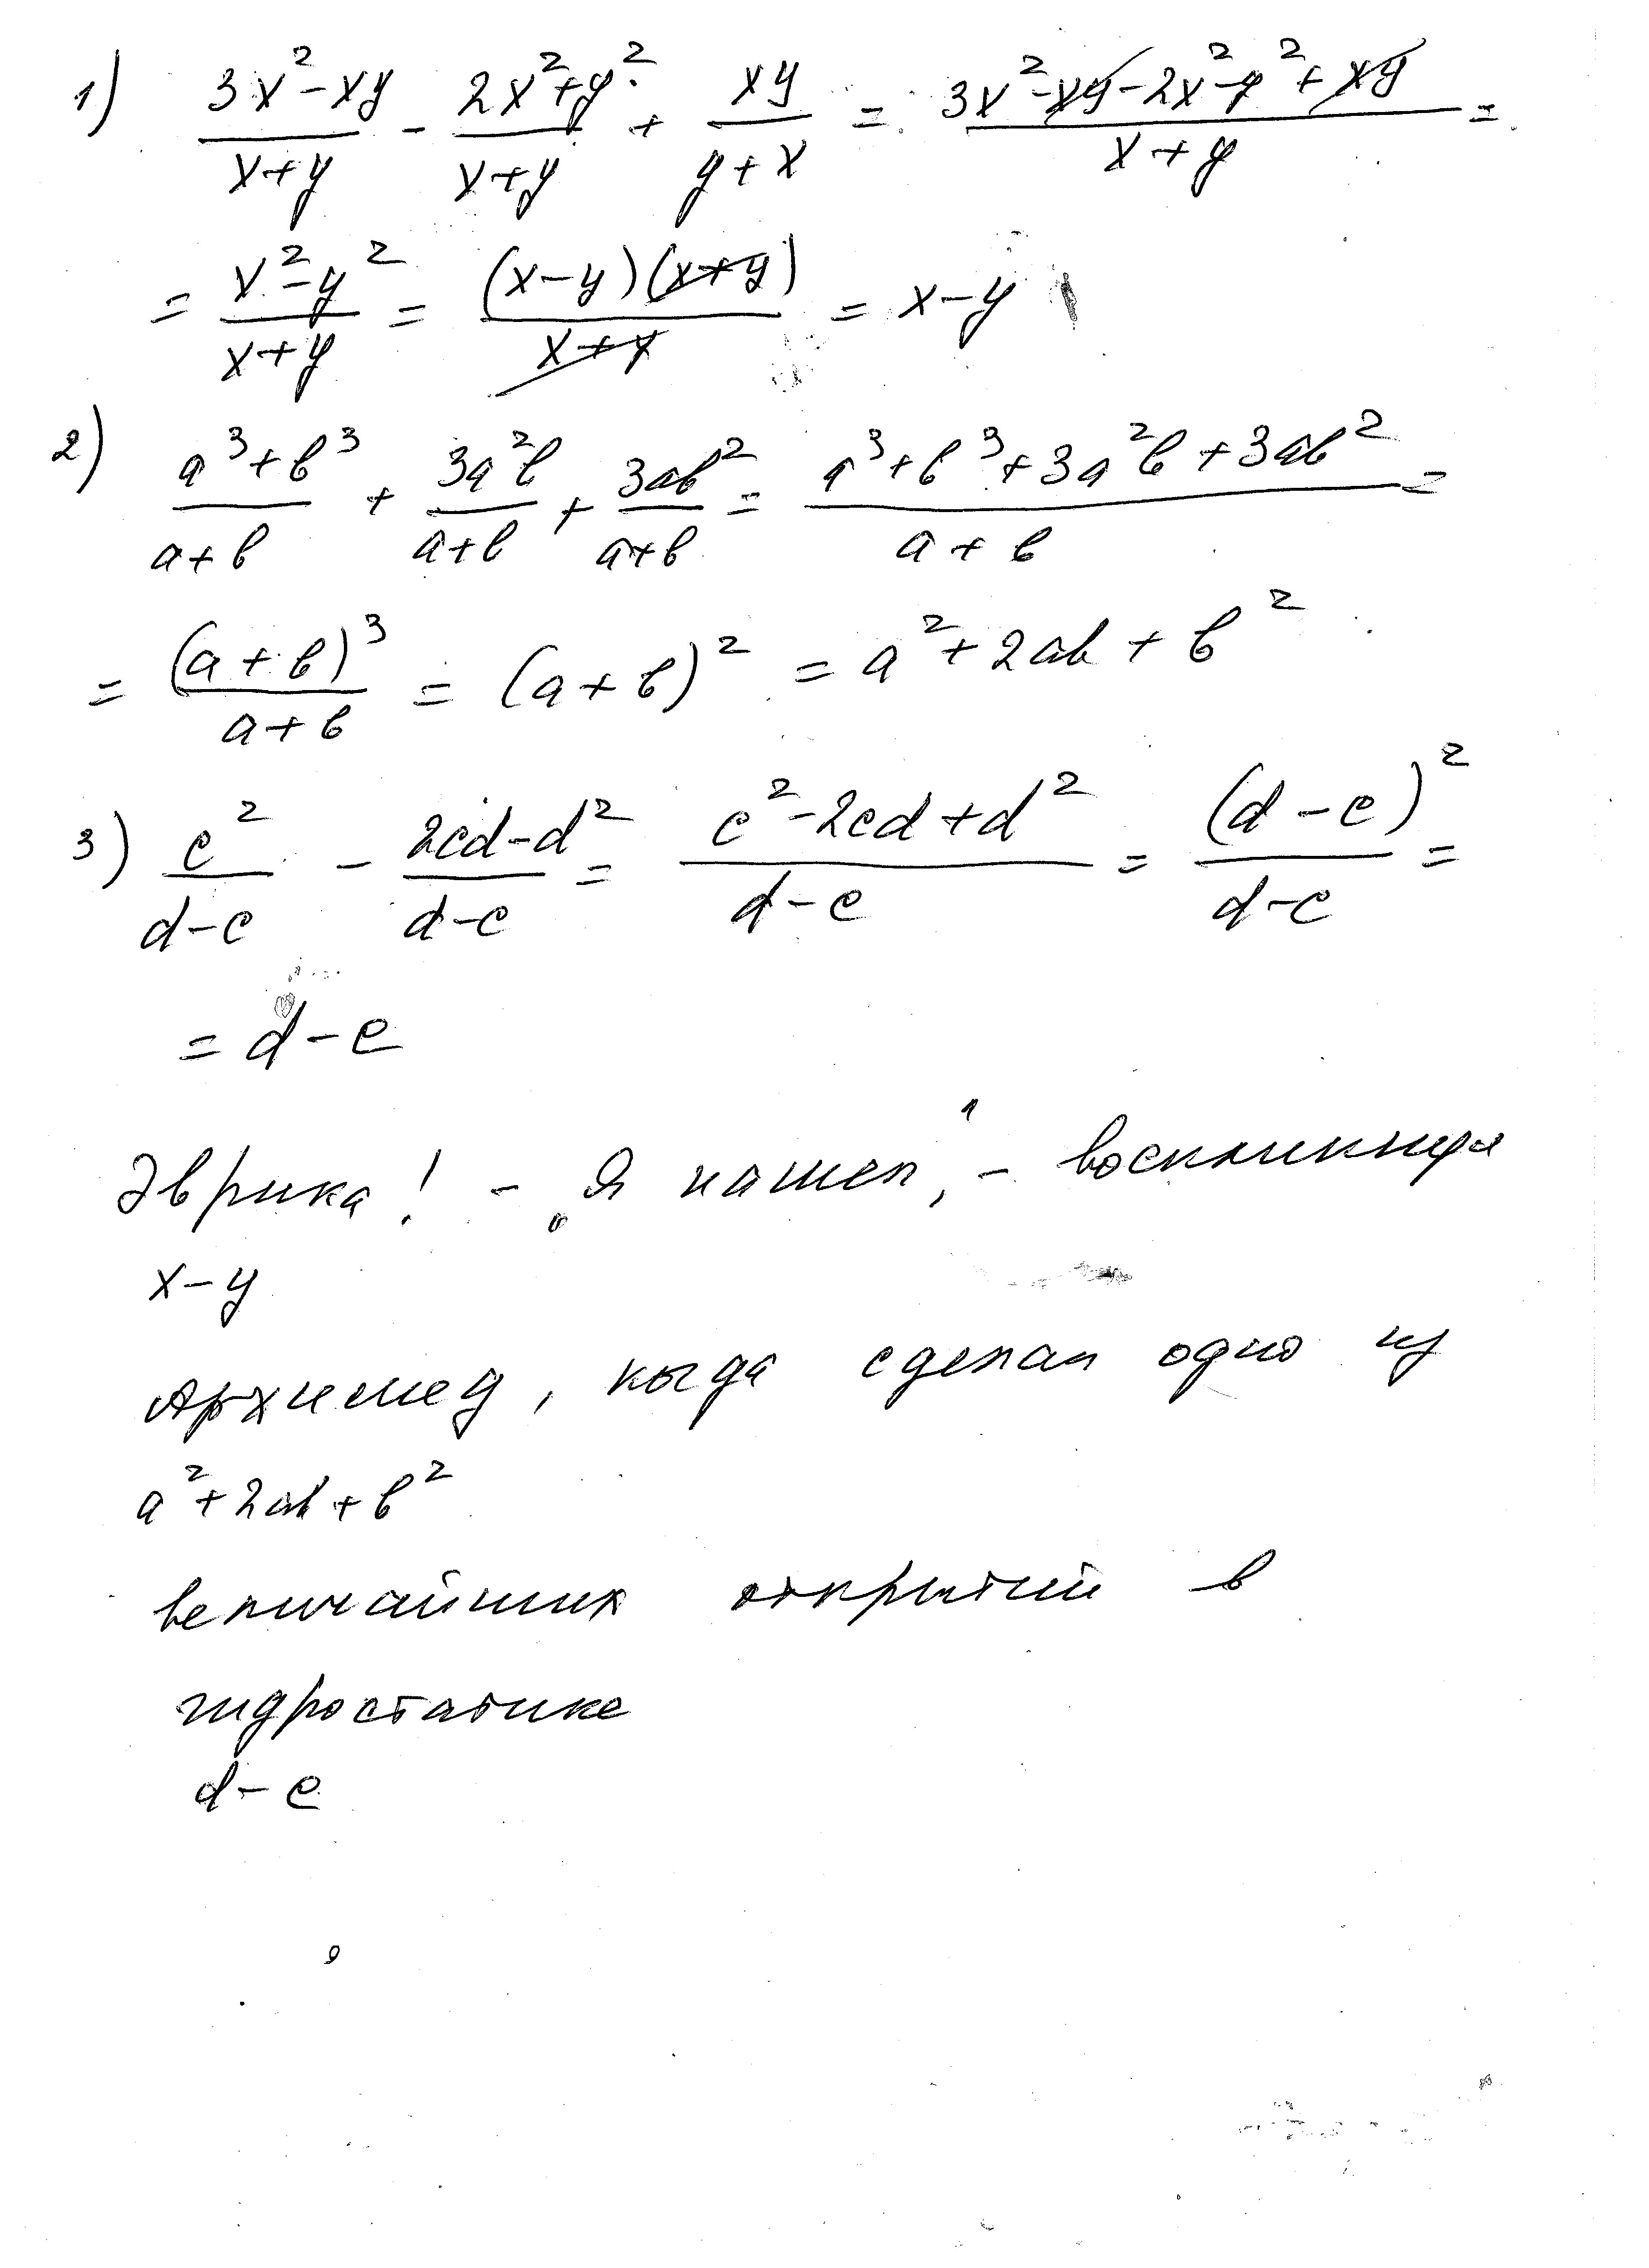 1) (3x²-xy)/(x+y) - (2x²+y²)/(x+y) + xy/(y+x) = (3x²-xy-2x²-y²+xy)/(x+y) =
= (x²-y²)/(x+y) = (x-y)(x+y)/(x+y) = x-y
2) (a³+b³)/(a+b) + 3a²b/(a+b) + 3ab²/(a+b) = (a³+b³+3a²b+3ab²)/(a+b) =
= (a+b)³/(a+b) = (a+b)² = a²+2ab+b²
3) c²/(d-c) - (2cd-d²)/(d-c) = (c²-2cd+d²)/(d-c) = (d-c)²/(d-c) =
= d-c
Эврика! - „Я нашел", - воскликнул
x-y
Архимед, когда сделал одно из
a²+2ab+b²
величайших открытий в
гидростатике
d-c